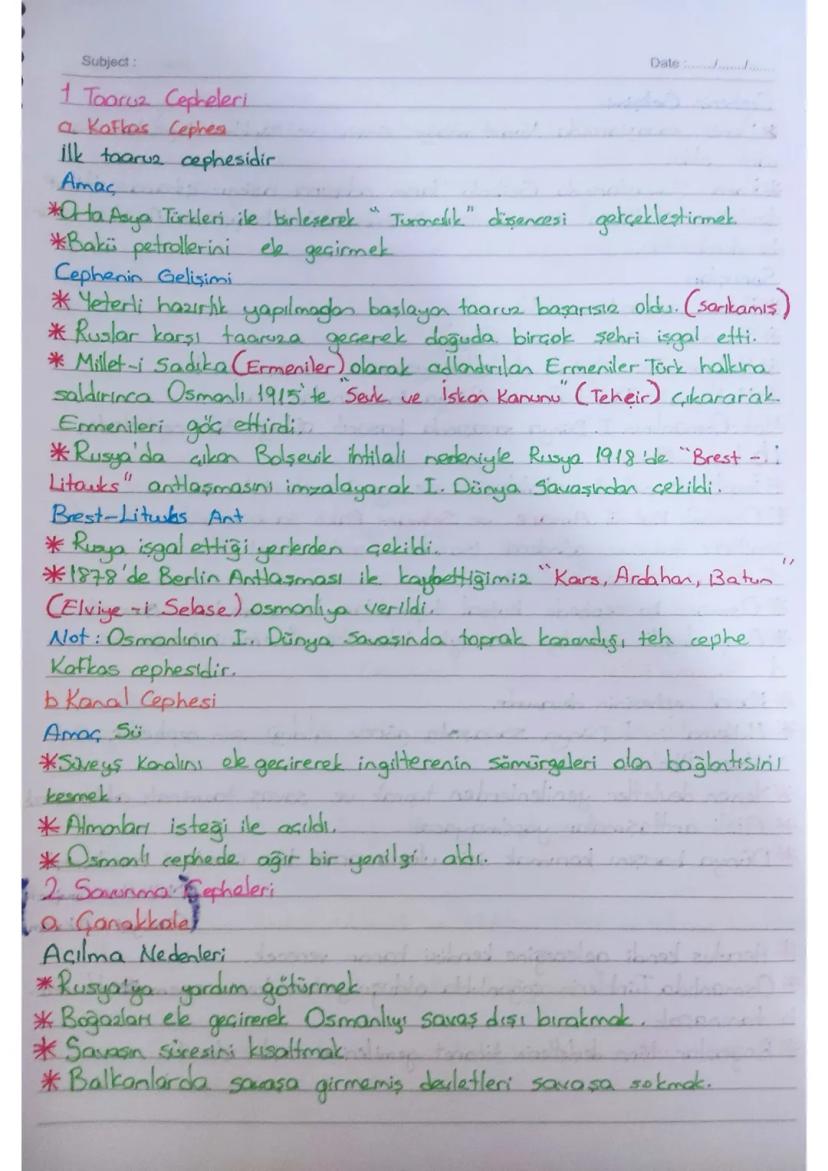 Subject :
Date :....../....../......
1 Taaruz Cepheleri
a Kafkas Cephesi
İlk taaruz cephesidir
Amaç
*Orta Asya Türkleri ile birleşerek "Turancılık" düşencesi gerçekleştirmek
*Bakü petrollerini ele geçirmek
Cephenin Gelişimi
* Yeterli hazırlık yapılmadan başlayan taaruz başarısız oldu. (Sarıkamış)
* Ruslar karşı taaruza geçerek doğuda birçok şehri işgal etti.
* Millet-i Sadıka (Ermeniler) olarak adlandırılan Ermeniler Türk halkına
saldırınca Osmanlı 1915'te "Sevk ve İskan Kanunu" (Tehcir) çıkararak
Ermenileri göç ettirdi.
*Rusya'da çıkan Bolşevik ihtilali nedeniyle Rusya 1918'de "Brest -
Litowks" antlaşmasını imzalayarak I. Dünya Savaşından çekildi.
Brest-Litowks Ant
* Rusya işgal ettiği yerlerden çekildi.
*1878'de Berlin Antlaşması ile kaybettiğimiz "Kars, Ardahan, Batum"
(Elviye-i Selase) osmanlıya verildi.
Not : Osmanlının I. Dünya Savaşında toprak kazandığı tek cephe
Kafkas cephesidir.
b Kanal Cephesi
Amaç Sü
*Süveyş Kanalını ele geçirerek ingilterenin sömürgeleri olan bağlantısını
kesmek.
* Almanları isteği ile açıldı.
* Osmanlı cephede ağır bir yenilgi aldı.
2. Savunma Cepheleri
a Çanakkale
Açılma Nedenleri
*Rusya'ya yardım götürmek
* Boğazları ele geçirerek Osmanlıyı savaş dışı bırakmak.
* Savaşın süresini kısaltmak
* Balkanlarda savaşa girmemiş devletleri savaşa sokmak.